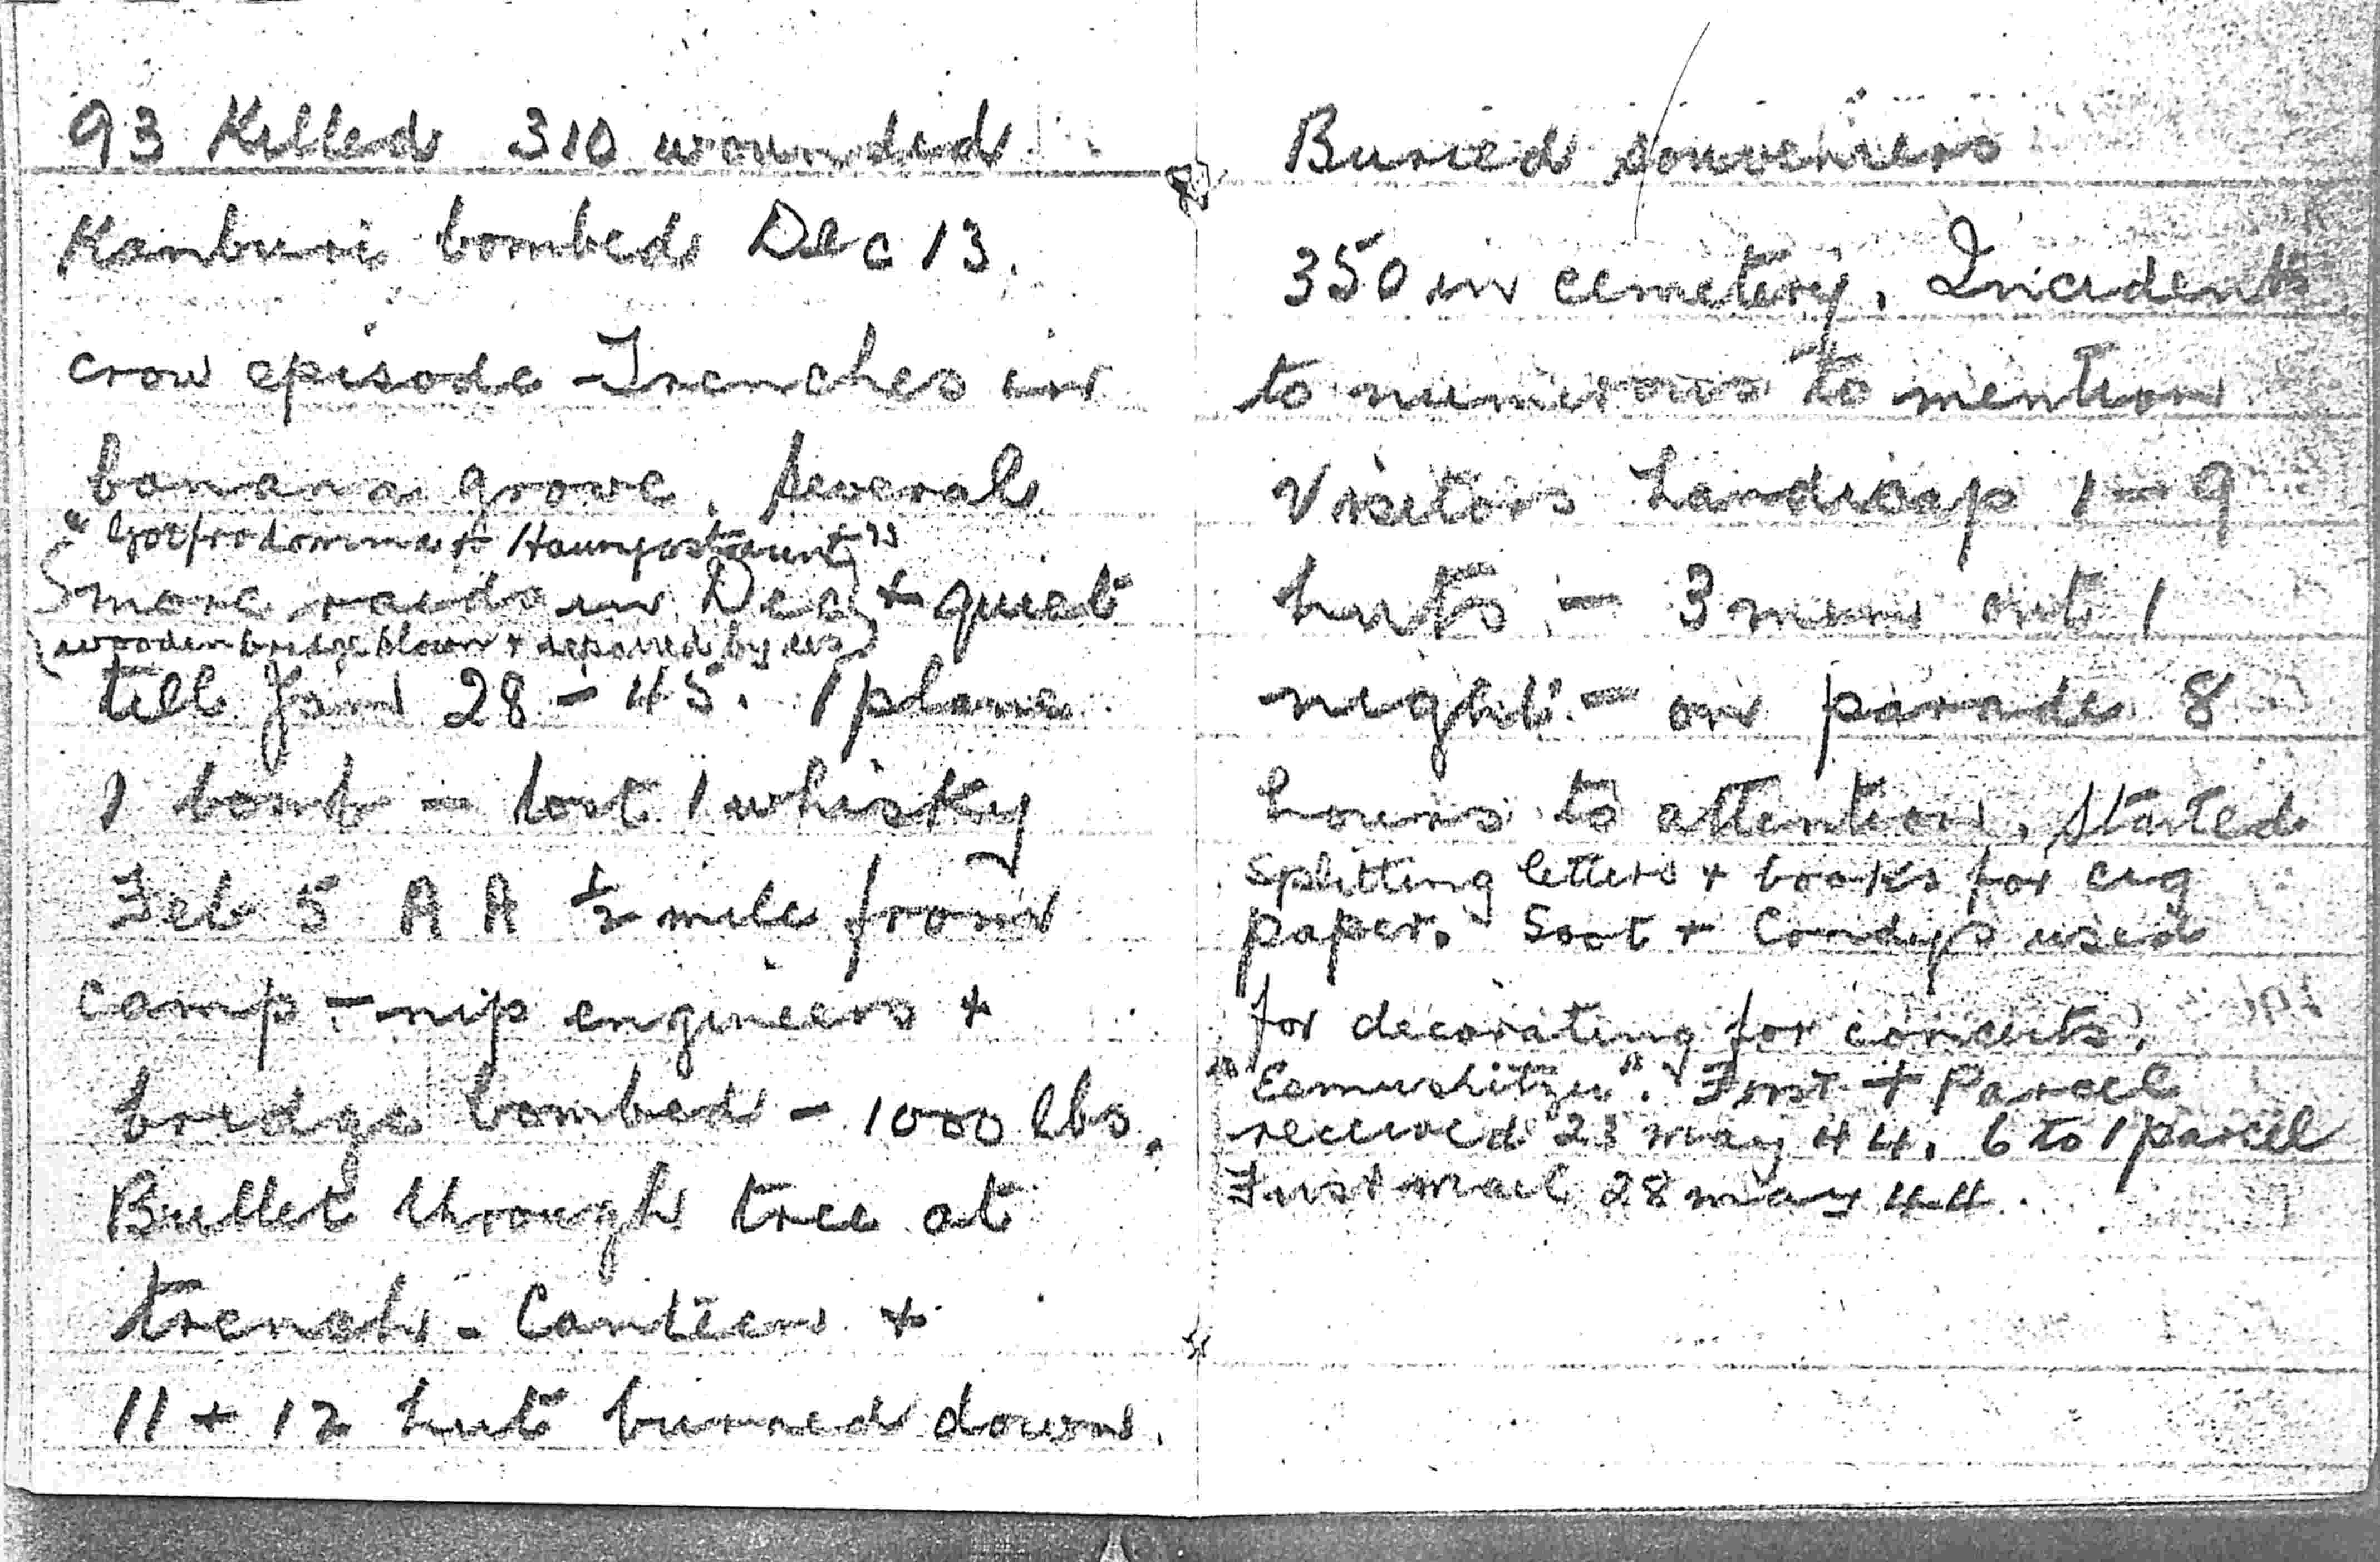 93 Killed 310 wounded
Kanburi bombed Dec 13.
crow episode - Trenches in
banana grove. Several
more raids in Dec + quiet
wooden bridge blown + repaired by us
till Jan 28 - 45. 1 plane
1 bomb - lost 1 whisky
Feb 5 A A ½ mile from
camp - nip engineers +
bridge bombed - 1000 lbs.
Bullet through tree at
trench. Canteen +
11 + 12 hut burned down.
Buried souveniers
350 in cemetery. Incidents
to numerous to mention
Visitors handicap 1 - 9
huts - 3 men out 1
night - on parade 8
hours to attention. Started
splitting letters + books for cig
paper. Soot + Condys used
for decorating for concerts.
"Eemushitzu". First + Parcel
received 23 may 44. 6 to 1 parcel
First mail 28 may 44.